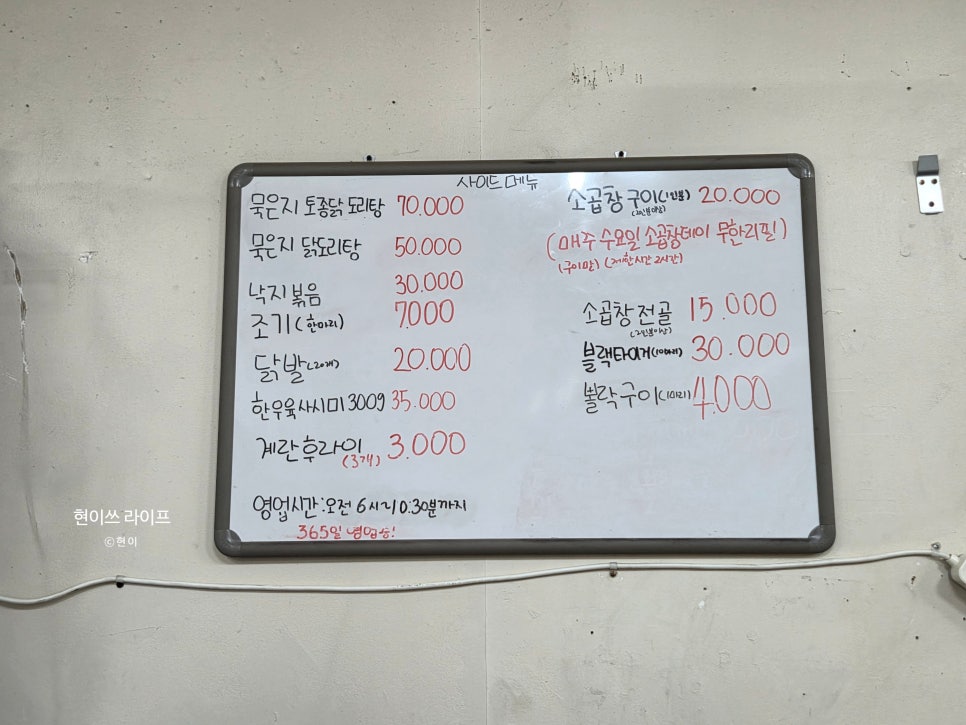 사이드메뉴
묵은지 토종닭 도리탕 70.000
묵은지 닭도리탕 50.000
낙지볶음 30.000
조기(한마리) 7.000
닭발(20개) 20.000
한우육사시미 300g 35.000
계란후라이 3.000
(3개)
영업시간:오전 6시~10:30분까지
365일 영업중!
소곱창 구이(1인분) 20.000
(2인분이상)
(매주 수요일 소곱창데이 무한리필)
(구이만) (제한시간 2시간)
소곱창전골 15.000
(2인분이상)
블랙타이거(10마리) 30.000
볼락구이(1마리) 4.000
현이쓰 라이프
©현이